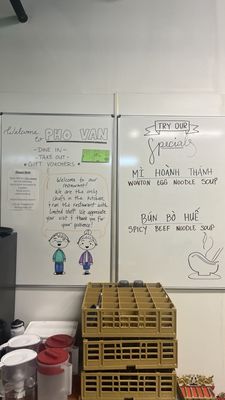 Welcome to
PHO VAN
- DINE IN -
- TAKE OUT -
• GIFT VOUCHERS •
Welcome to our
restaurant!
We are the only
chefs in the kitchen,
& run the restaurant with
limited staff. We appreciate
your visit & thank you for
your patience!
TRY OUR
Specials
MÌ HOÀNH THÁNH
WONTON EGG NOODLE SOUP
BÚN BÒ HUẾ
SPICY BEEF NOODLE SOUP